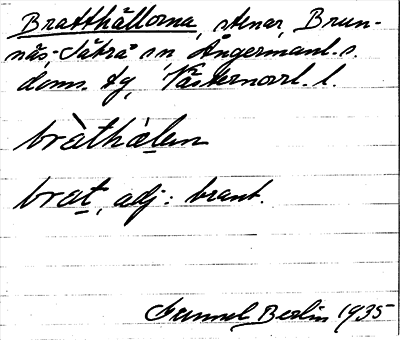 Bratthällorna, stenar, Brun-
näs, Sätrå sn, Ångermanl. s.
doms. tg, Västernorrl. l.
bràthàlen
brat, adj: brant.
Gunnel Berlin 1935